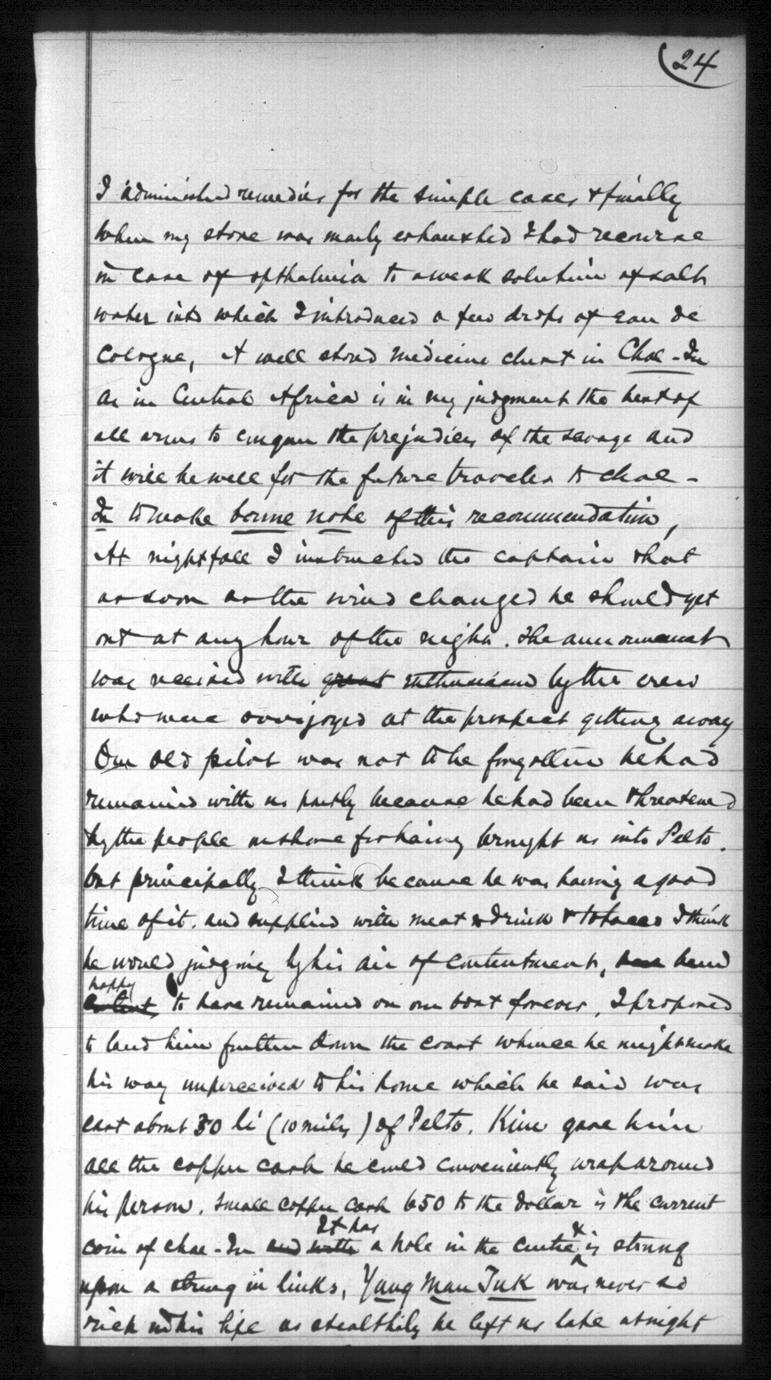 (24
I administered remedies for the simple cases & finally
when my store was nearly exhausted I had recourse
in case of opthalmia to a weak solution of salt
water into which I introduced a few drops of eau de
Cologne, A well stored medicine chest in Chae-In
as in Central Africa is in my judgment the best of
all arms to conquer the prejudices of the savage and
it will be well for the future traveler to chae-
In to make bonne note of this recommendation,
At nightfall I instructed the captain that
as soon as the wind changed he should get
out at any hour of the night. The announcement
was received with great enthusiasm by the crew
who were overjoyed at the prospect getting away
Our old pilot was not to be forgotten he had
remained with us partly because he had been threatened
by the people on shore for having brought us into Pelto.
but principally I think because he was having a good
time of it. and supplied with meat & drink & tobacco I think
he would judging by his air of contentment, have been
happy
content, to have remained on our boat forever, I proposed
to land him further down the coast whence he might make
his way unperceived to his home which he said was
east about 30 li (10 miles) of Pelto. Kim gave him
all the copper cash he could conveniently wrap around
his person. Small copper cash 650 to the dollar is the current
It has &
coin of chae-In and with a hole in the centre is strung
upon a string in links, Yang Man Tuk was never so
rich in his life as stealthily he left us late at night